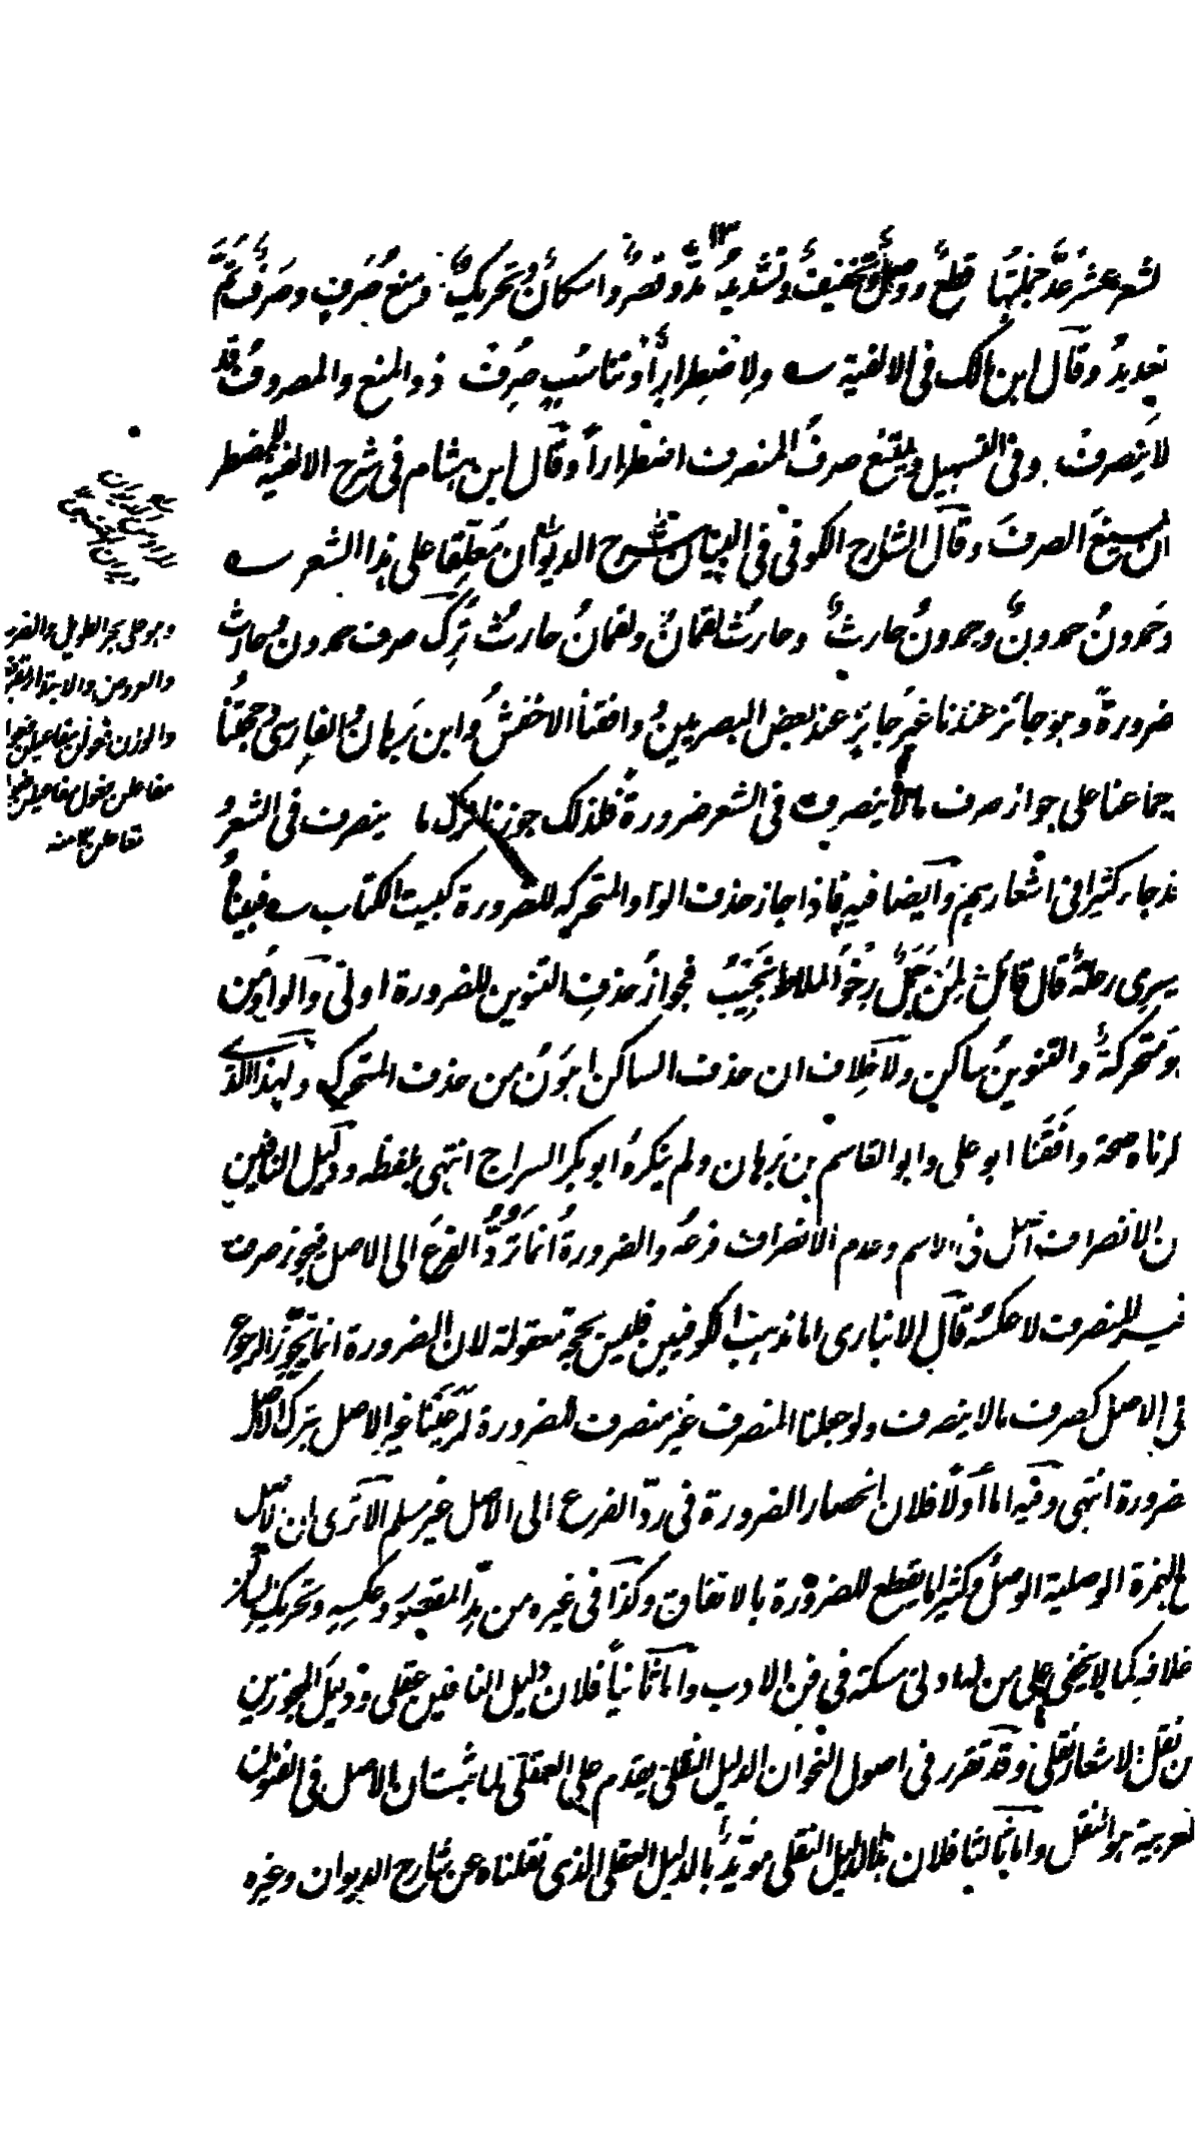 ١٣
لشعر عشر عد جملتها قطع ووصل وتخفيف وتشديد مد وقصر واسكان وتحريك ومنع صرف وصرف ثم
تعديد وقال ابن مالك فى الالفية ولاضطرار أو تناسب صرف ذو المنع والمصروف قد
لا ينصرف وفى التسهيل ويمتنع صرف المنصرف اضطرارا وقال ابن هشام فى شرح الالفية للمضطر
ان يمنع الصرف وقال الشارح الكوفى فى التبيان شرح الديوان معلقا على هذا الشعر
وحمدون حمدون وحمدون حارث وحارث لقمان ولقمان حارث ترك صرف حمدون وحارث
ضرورة وهو جائز عندنا غير جائز عند بعض البصريين وافقنا الاخفش وابن برهان الفارسى وحجتنا
جماعنا على جواز صرف مالا ينصرف فى الشعر ضرورة فلذلك جوزنا ترك ما ينصرف فى الشعر
قد جاء كثيرا فى اشعارهم وايضا فيه فاذا جاز حذف الواو المتحركه للضرورة كبيت الكتاب فبيناه
يسرى رحله قال قائل لمن جمل رخو الملاط نجيب فجواز حذف التنوين للضرورة اولى والواو من
هو متحركة والتنوين ساكن ولا خلاف ان حذف الساكن اهون من حذف المتحرك ولهذا الذى
كرناه صحة وافقنا ابو على وابو القاسم بن برهان ولم ينكره ابو بكر السراج انتهى بلفظه ودليل النافين
ن الانصراف اصل فى الاسم وعدم الانصراف فرعه والضرورة انما ترد الفرع الى الاصل فيجوز صرف
غير المنصرف لا عكسه قال الانبارى اما مذهب الكوفيين فليس بحجة معقولة لان الضرورة انما تجوز الرجوع
الى الاصل كصرف مالا ينصرف ولو جعلنا المنصرف غير منصرف للضرورة لرجحنا غير الاصل بترك الاصل
ضرورة انتهى وفيه اما اولا فلان انحصار الضرورة فى رد الفرع الى الاصل غير مسلم الا ترى ان الاصل
فى الهمزة الوصلية الوصل وكثيرا ما يقطع للضرورة بالاتفاق وكذا فى غيره من مد المقصور وعكسه وتحريك الساكن
خلافه كما لا يخفى على من له ادنى مسكة فى فن الادب واما ثانيا فلان دليل النافين عقلى ودليل المجوزين
من نقل الاشعار نقلى وقد تقرر فى اصول النحو ان الدليل النقلى يقدم على العقلى لما ثبت ان الاصل فى الفنون
لعربية هو النقل واما ثالثا فلان هذا الدليل النقلى مؤيد بالدليل العقلى الذى نقلناه عن شارح الديوان وغيره
وهو على بحر الطويل والضرب
والعروض والابتدا
والوزن فعولن مفاعيلن فعولن
مفاعلن فعول مفاعيلن فعولن
مفاعلن ١٢ منه